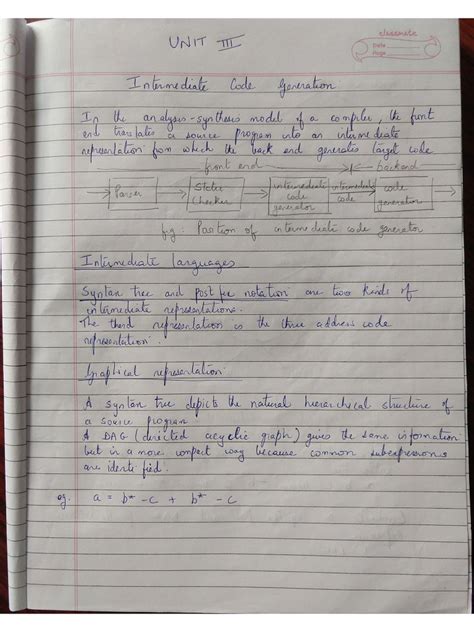 classmate
Date
Page
UNIT III
Intermediate Code Generation
In the analysis-synthesis model of a compiler, the front
end translates a source program into an intermediate
representation from which the back end generates target code
front end backend
Parser Static Checker intermediate code generator intermediate code code generator
fig: Position of intermediate code generator
Intermediate languages
Syntax tree and postfix notation are two kinds of
intermediate representations.
The third representation is the three address code
representation.
Graphical representation:
A syntax tree depicts the natural hierarchical structure of
a source program
A DAG (directed acyclic graph) gives the same information
but in a more compact way because common subexpressions
are identified.
eg. a = b* -c + b* -c